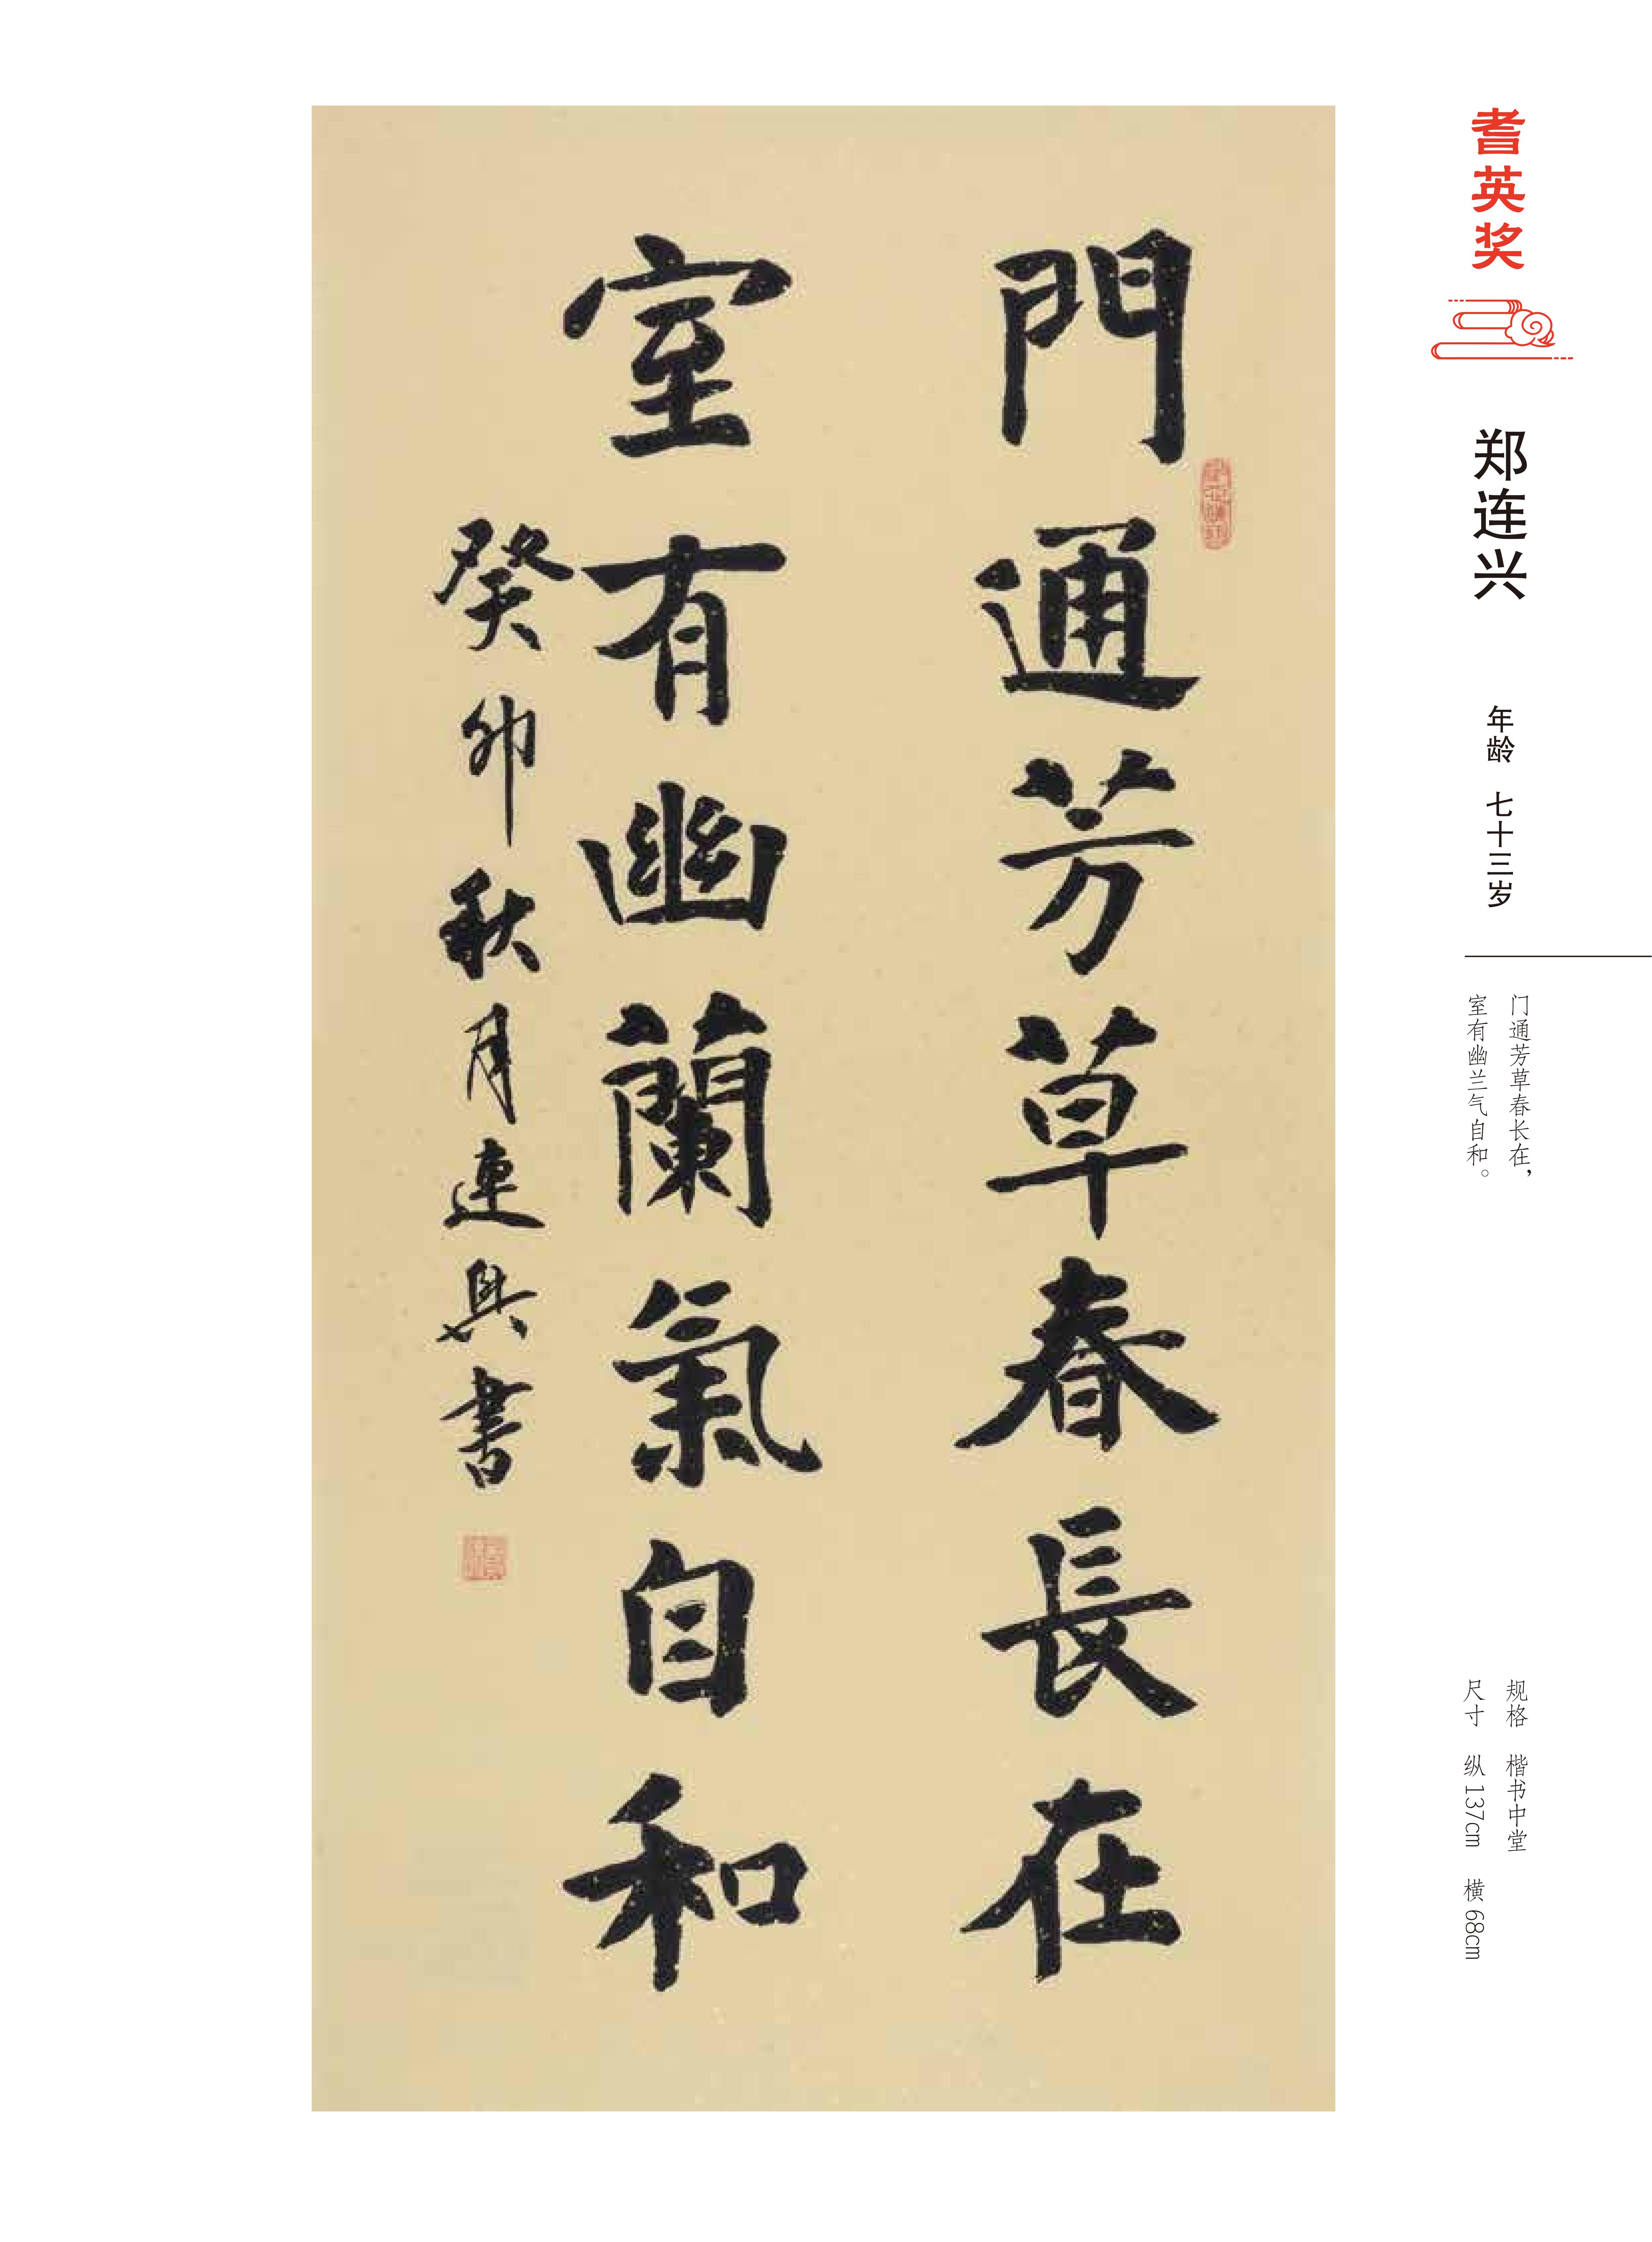 耆英奖
郑连兴
年龄 七十三岁
门通芳草春长在，
室有幽兰气自和。
规格 楷书中堂
尺寸 纵137cm 横68cm
門通芳草春長在
室有幽蘭氣自和
癸卯秋月連興書